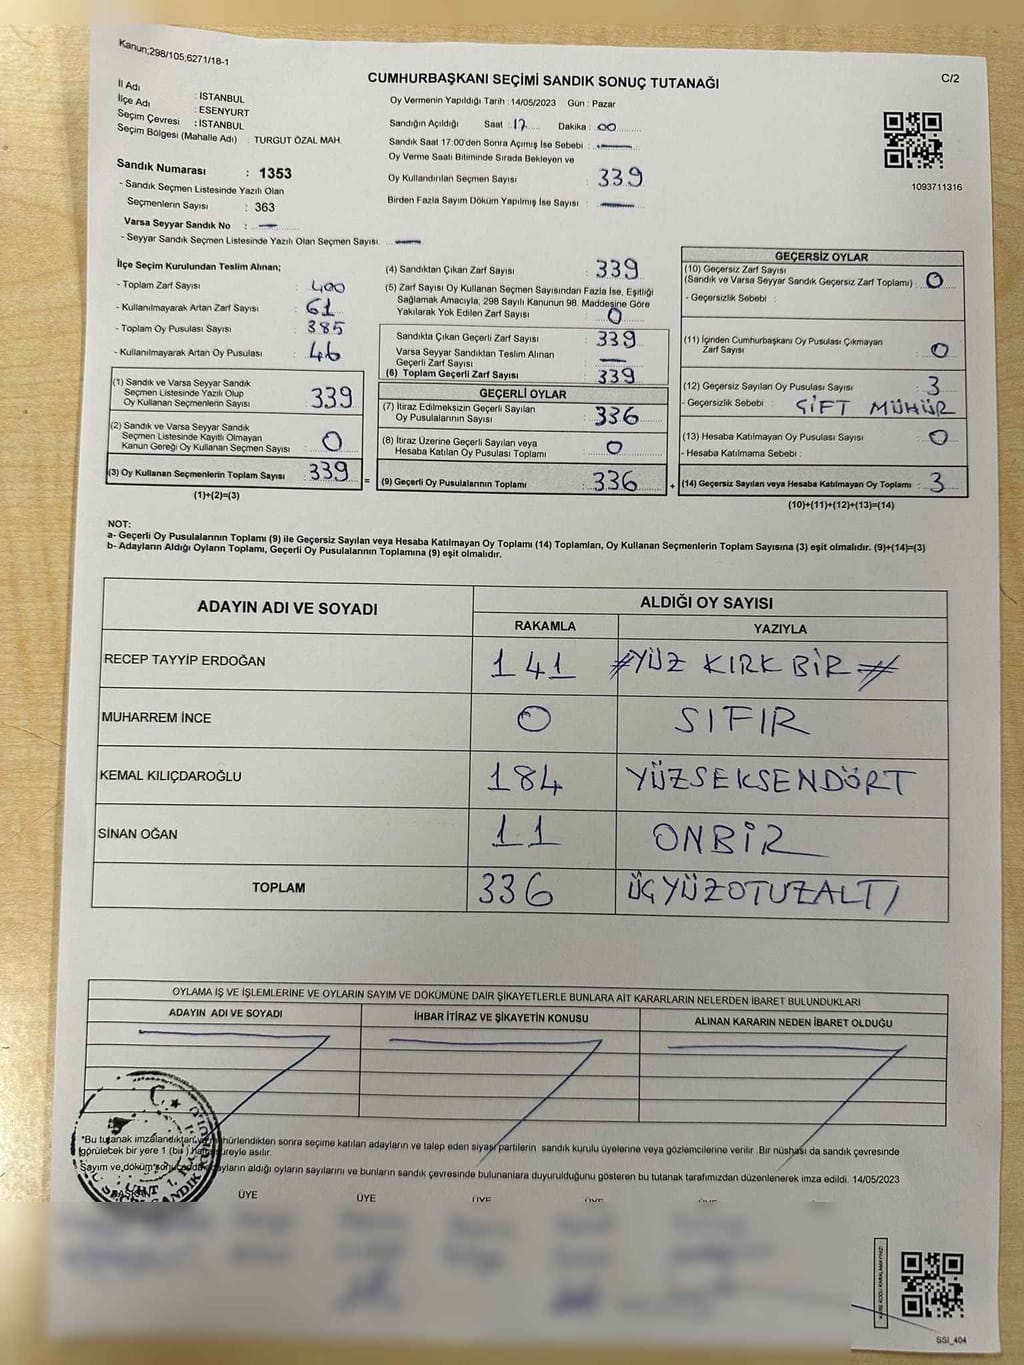 Kanun;298/105,6271/18-1
C/2
CUMHURBAŞKANI SEÇİMİ SANDIK SONUÇ TUTANAĞI
İl Adı : İSTANBUL
İlçe Adı : ESENYURT
Seçim Çevresi : İSTANBUL
Seçim Bölgesi (Mahalle Adı) : TURGUT ÖZAL MAH.
Sandık Numarası : 1353
- Sandık Seçmen Listesinde Yazılı Olan
Seçmenlerin Sayısı : 363
Varsa Seyyar Sandık No : —
- Seyyar Sandık Seçmen Listesinde Yazılı Olan Seçmen Sayısı: —
Oy Vermenin Yapıldığı Tarih : 14/05/2023 Gün : Pazar
Sandığın Açıldığı Saat : 17 Dakika : 00
Sandık Saat 17.00'den Sonra Açımış İse Sebebi : —
Oy Verme Saati Bitiminde Sırada Bekleyen ve
Oy Kullandırılan Seçmen Sayısı : 339
Birden Fazla Sayım Döküm Yapılmış İse Sayısı : —
1093711316
İlçe Seçim Kurulundan Teslim Alınan;
- Toplam Zarf Sayısı : 400
- Kullanılmayarak Artan Zarf Sayısı : 61
- Toplam Oy Pusulası Sayısı : 385
- Kullanılmayarak Artan Oy Pusulası : 46
(1) Sandık ve Varsa Seyyar Sandık
Seçmen Listesinde Yazılı Olup
Oy Kullanan Seçmenlerin Sayısı : 339
(2) Sandık ve Varsa Seyyar Sandık
Seçmen Listesinde Kayıtlı Olmayan
Kanun Gereği Oy Kullanan Seçmen Sayısı : 0
(3) Oy Kullanan Seçmenlerin Toplam Sayısı : 339 =
(1)+(2)=(3)
(4) Sandıktan Çıkan Zarf Sayısı : 339
(5) Zarf Sayısı Oy Kullanan Seçmen Sayısından Fazla İse, Eşitliği
Sağlamak Amacıyla, 298 Sayılı Kanunun 98. Maddesine Göre
Yakılarak Yok Edilen Zarf Sayısı : 0
Sandıkta Çıkan Geçerli Zarf Sayısı : 339
Varsa Seyyar Sandıktan Teslim Alınan
Geçerli Zarf Sayısı : —
(6) Toplam Geçerli Zarf Sayısı : 339
GEÇERLİ OYLAR
(7) İtiraz Edilmeksizin Geçerli Sayılan
Oy Pusulalarının Sayısı : 336
(8) İtiraz Üzerine Geçerli Sayılan veya
Hesaba Katılan Oy Pusulası Toplamı : 0
(9) Geçerli Oy Pusulalarının Toplamı : 336 +
GEÇERSİZ OYLAR
(10) Geçersiz Zarf Sayısı
(Sandık ve Varsa Seyyar Sandık Geçersiz Zarf Toplamı) : 0
- Geçersizlik Sebebi :
(11) İçinden Cumhurbaşkanı Oy Pusulası Çıkmayan
Zarf Sayısı : 0
(12) Geçersiz Sayılan Oy Pusulası Sayısı : 3
- Geçersizlik Sebebi : ÇİFT MÜHÜR
(13) Hesaba Katılmayan Oy Pusulası Sayısı : 0
- Hesaba Katılmama Sebebi :
(14) Geçersiz Sayılan veya Hesaba Katılmayan Oy Toplamı : 3
(10)+(11)+(12)+(13)=(14)
NOT:
a- Geçerli Oy Pusulalarının Toplamı (9) ile Geçersiz Sayılan veya Hesaba Katılmayan Oy Toplamı (14) Toplamları, Oy Kullanan Seçmenlerin Toplam Sayısına (3) eşit olmalıdır. (9)+(14)=(3)
b- Adayların Aldığı Oyların Toplamı, Geçerli Oy Pusulalarının Toplamına (9) eşit olmalıdır.
ADAYIN ADI VE SOYADI ALDIĞI OY SAYISI
RAKAMLA YAZIYLA
RECEP TAYYİP ERDOĞAN 141 #YÜZ KIRK BİR#
MUHARREM İNCE 0 SIFIR
KEMAL KILIÇDAROĞLU 184 YÜZSEKSENDÖRT
SİNAN OĞAN 11 ONBİR
TOPLAM 336 ÜÇYÜZOTUZALTI
OYLAMA İŞ VE İŞLEMLERİNE VE OYLARIN SAYIM VE DÖKÜMÜNE DAİR ŞİKAYETLERLE BUNLARA AİT KARARLARIN NELERDEN İBARET BULUNDUKLARI
ADAYIN ADI VE SOYADI İHBAR İTİRAZ VE ŞİKAYETİN KONUSU ALINAN KARARIN NEDEN İBARET OLDUĞU
*Bu tutanak imzalandıktan ve mühürlendikten sonra seçime katılan adayların ve talep eden siyasi partilerin sandık kurulu üyelerine veya gözlemcilerine verilir. Bir nüshası da sandık çevresinde
görülecek bir yere 1 (bir) hafta süreyle asılır.
Sayım ve döküm sonucunda adayların aldığı oyların sayılarını ve bunların sandık çevresinde bulunanlara duyurulduğunu gösteren bu tutanak tarafımızdan düzenlenerek imza edildi. 14/05/2023
BAŞKAN ÜYE ÜYE ÜYE ÜYE ÜYE
SSI_404